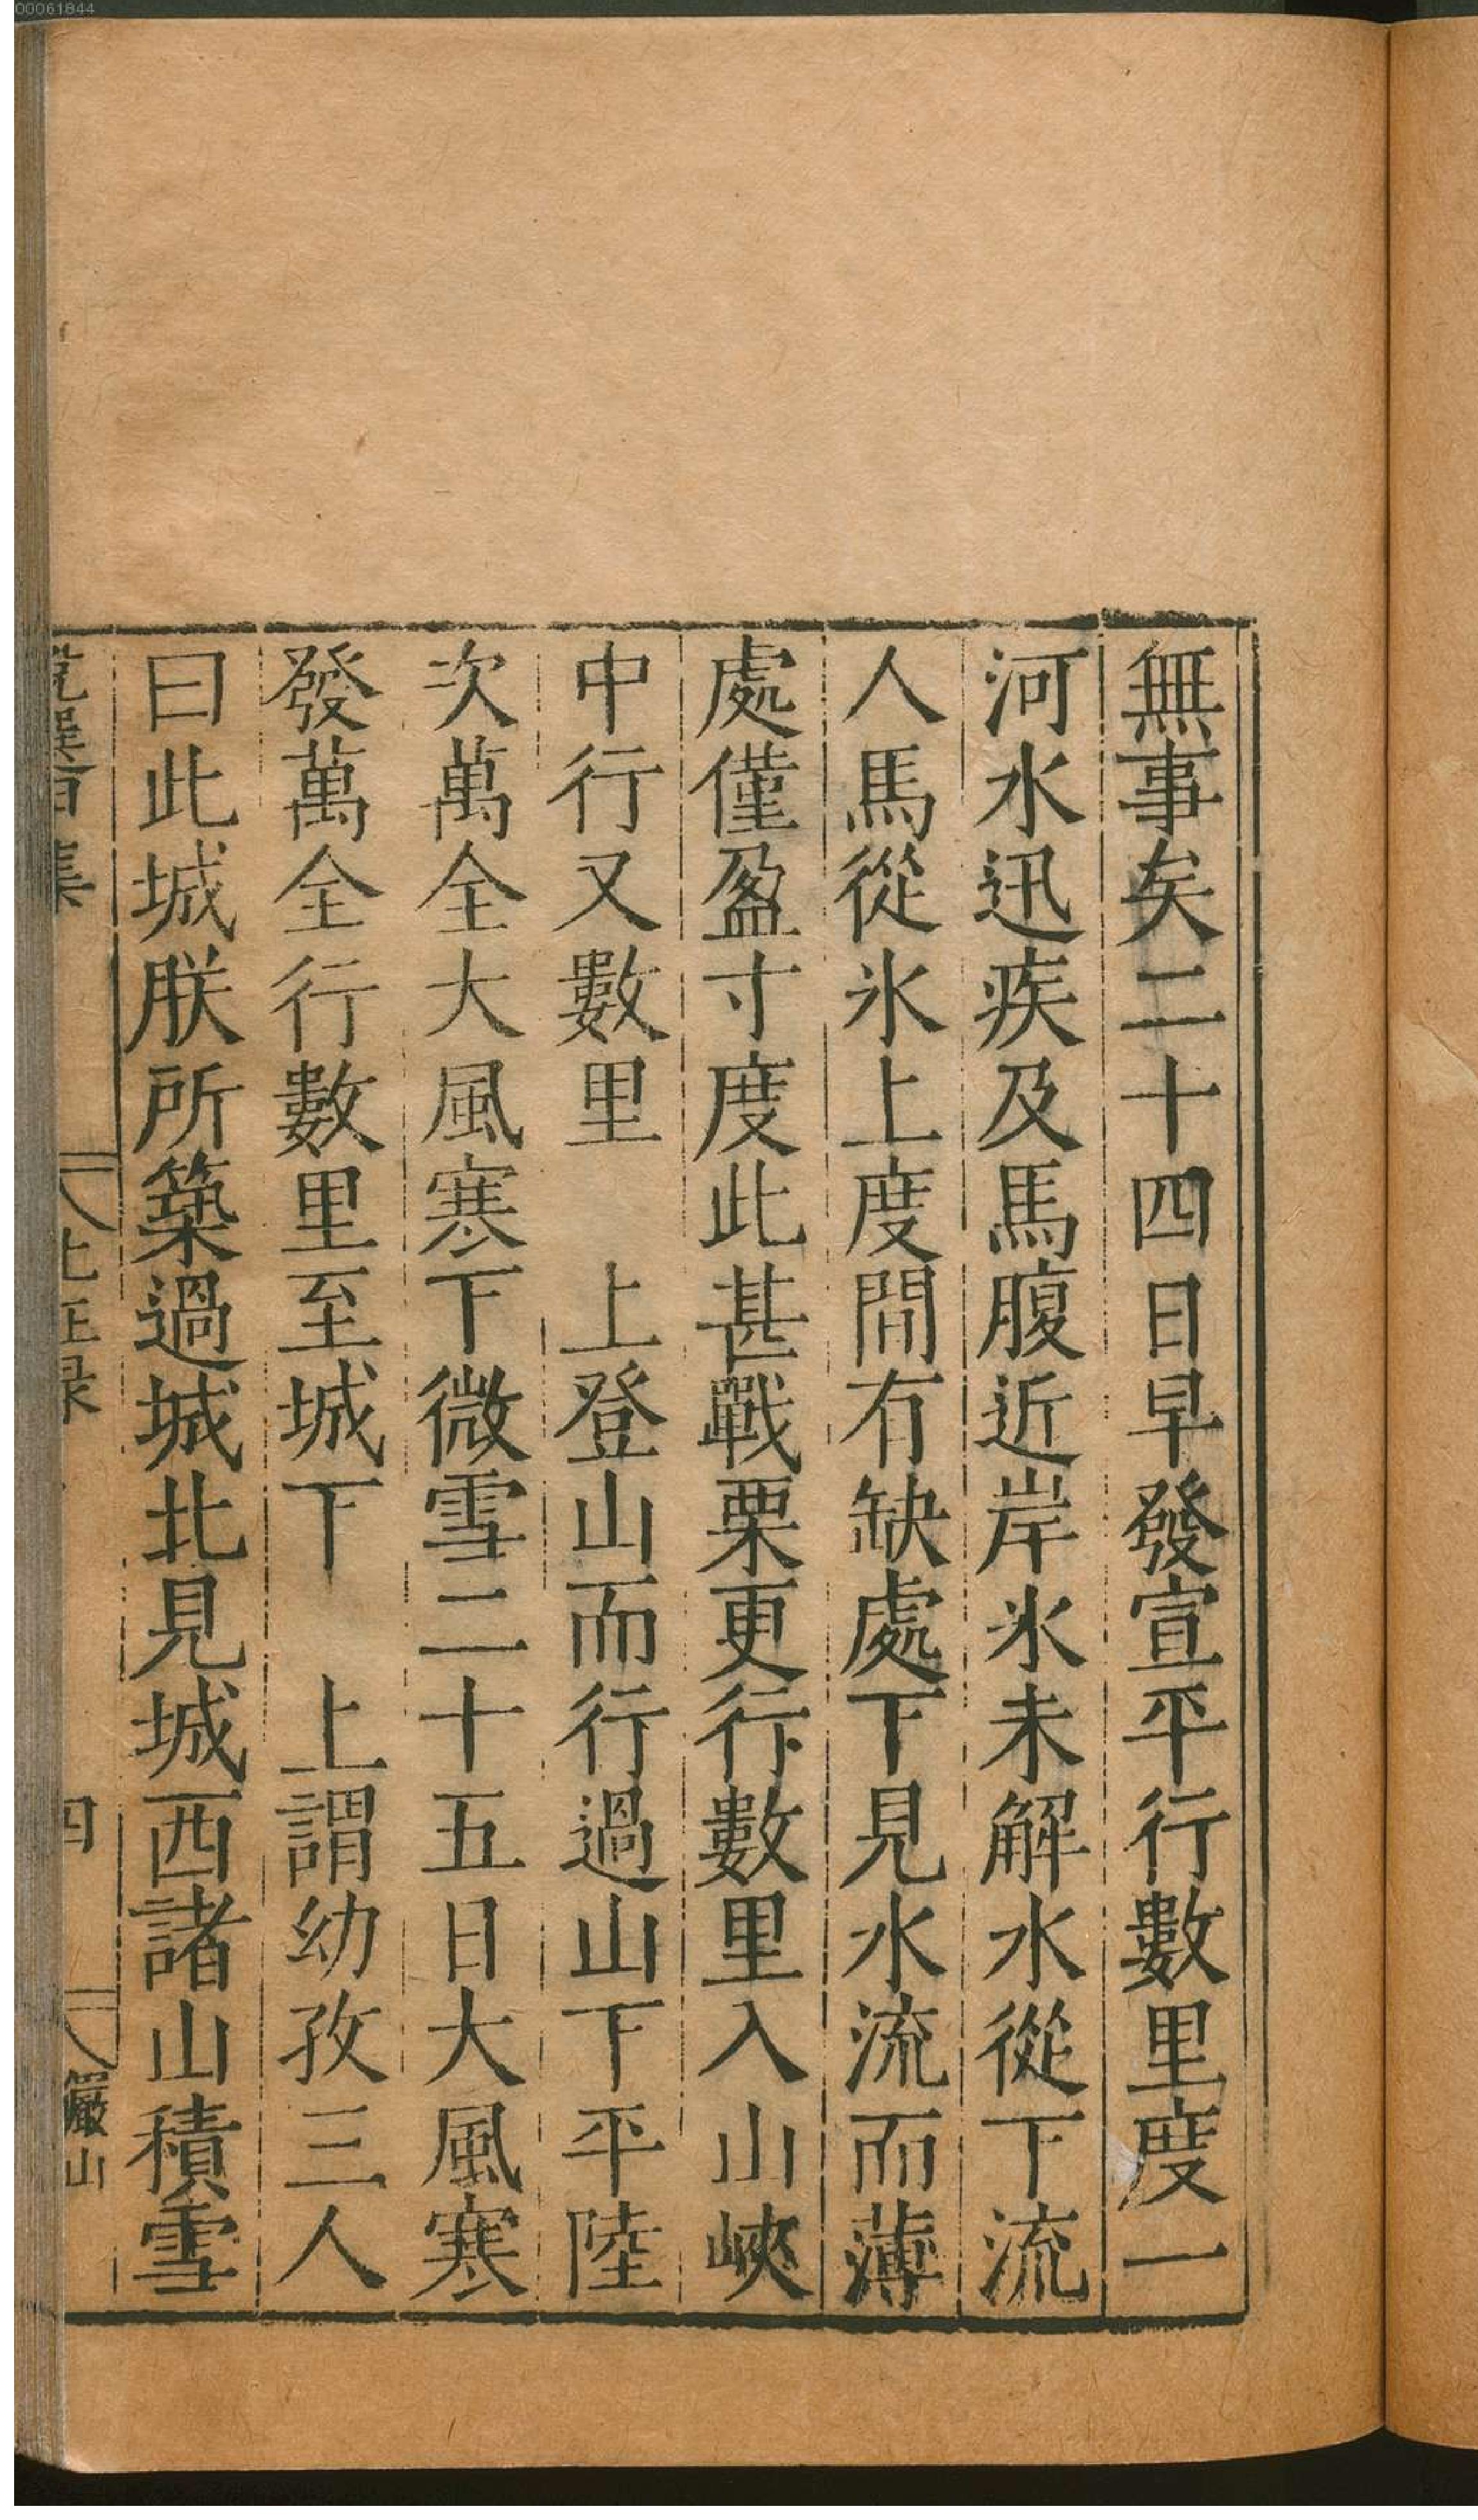 00061844
無事矣二十四日早發宣平行數里度一
河水迅疾及馬腹近岸氷未解水從下流
人馬從氷上度間有缺處下見水流而薄
處僅盈寸度此甚戰栗更行數里入山峽
中行又數里　上登山而行過山下平陸
次萬全大風寒下微雪二十五日大風寒
發萬全行數里至城下　上謂幼孜三人
曰此城朕所築過城北見城西諸山積雪
四
儼山